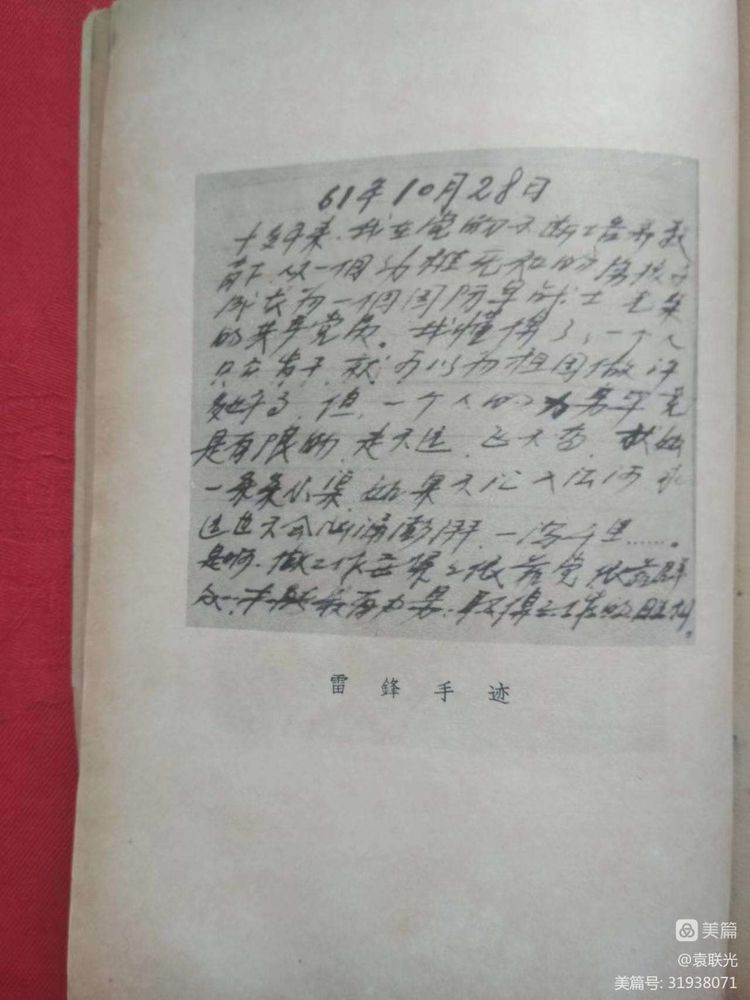 61年10月28日
十多年来，我在党的不断培养教
育下，从一个幼稚无知的穷孩子
成长为一个国防军战士，光荣
的共产党员。我懂得了，一个人
只要肯干，就可以为祖国做许
多好事，但，一个人的力量毕竟
是有限的，走不远，飞不高，我好
一条条小渠，如果不汇入江河，永
远也不会汹涌澎湃，一泻千里……。
是啊，做工作要紧紧依靠党，依靠群
众，才能最有力量，取得工作的胜利。
雷鋒手迹
美篇
@袁联光
美篇号: 31938071